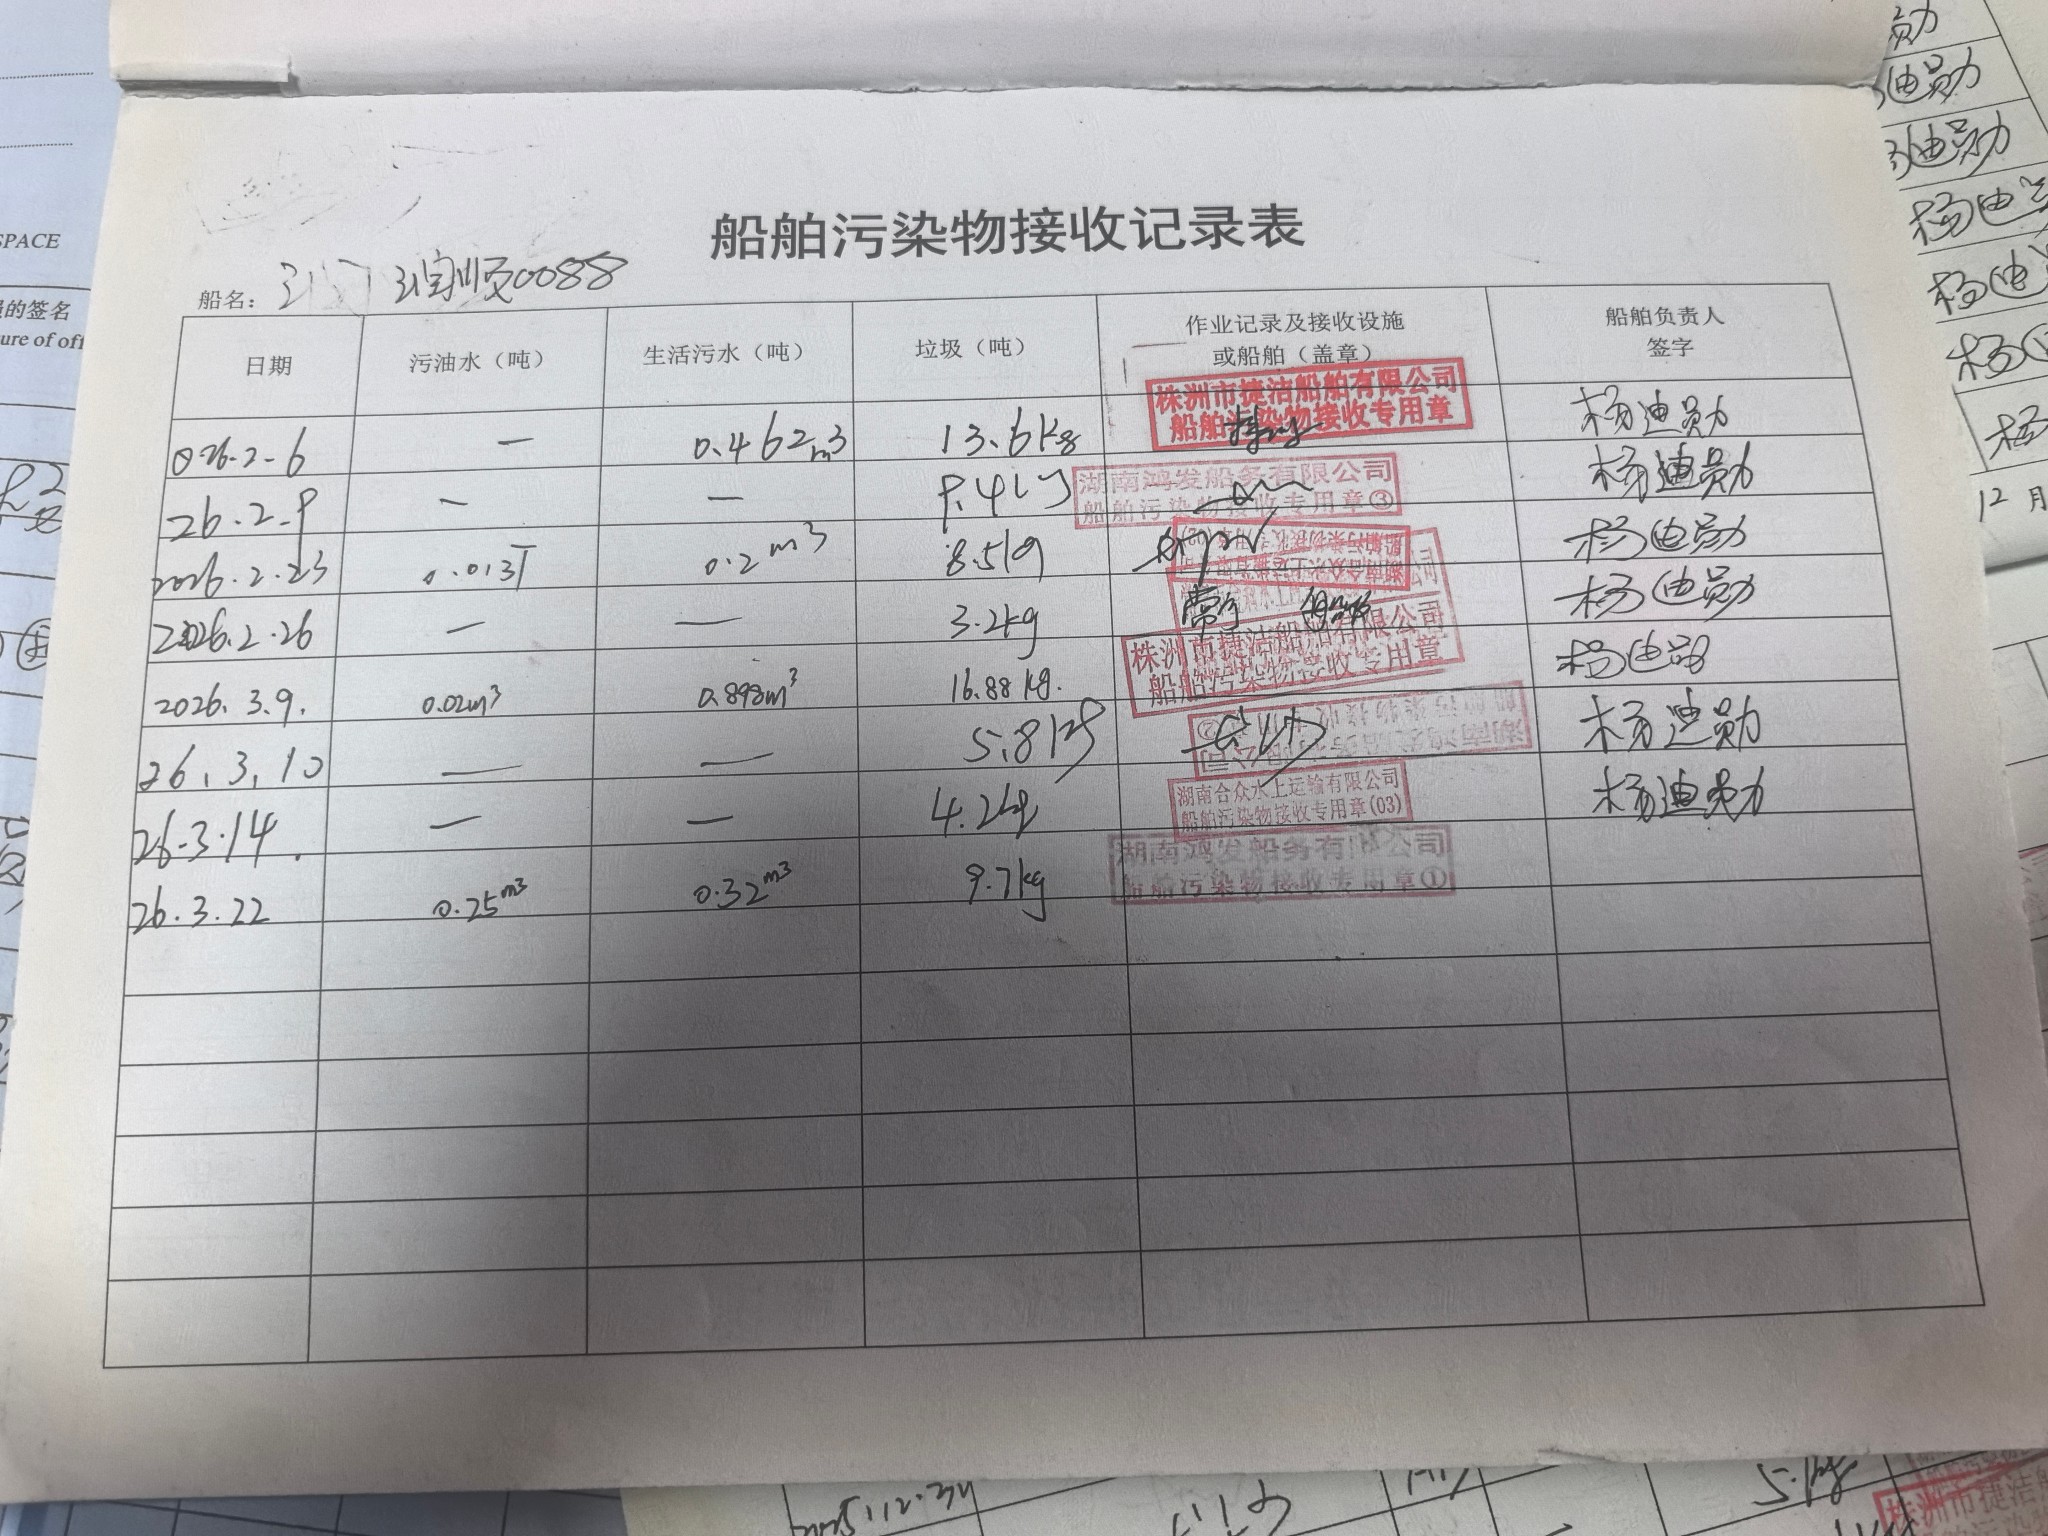 船舶污染物接收记录表
船名： 润顺0088
日期 污油水（吨） 生活污水（吨） 垃圾（吨） 作业记录及接收设施 或船舶（盖章） 船舶负责人 签字
026.2-6 — 0.462m3 13.6kg 株洲市捷洁船舶有限公司 船舶污染物接收专用章 杨迪勋
26.2.9 — — 9.4kg 湖南鸿发船务有限公司 船舶污染物接收专用章③ 杨迪勋
2026.2.23 0.013T 0.2m3 8.5kg 杨迪勋
2026.2.26 — — 3.2kg 杨迪勋
2026.3.9. 0.02m³ 0.898m³ 16.88kg. 株洲市捷洁船舶有限公司 船舶污染物接收专用章 杨迪勋
26.3.10 — — 5.8kg 杨迪勋
26-3.14. — — 4.2kg 湖南合众水上运输有限公司 船舶污染物接收专用章(03) 杨迪勋
26.3.22 0.25m3 0.32m3 9.7kg 湖南鸿发船务有限公司 船舶污染物接收专用章①
SPACE
的签名
ure of off
迪勋
迪勋
杨迪
杨迪
杨
杨
12月
株洲市捷洁船